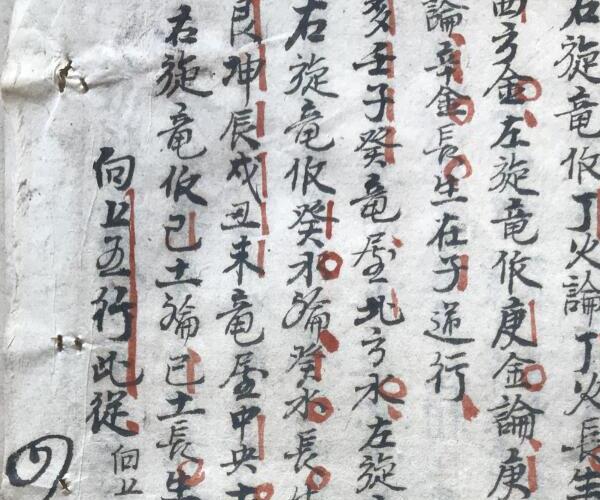 右旋竜依丁火論丁火長生
西方金左旋竜依庚金論庚
論辛金長生在子逆行
亥壬子癸竜屋北方水左旋
右旋竜依癸水論癸水長生
艮坤辰戌丑未竜屋中央土
右旋竜依己土論己土長生
向上五行此從向上